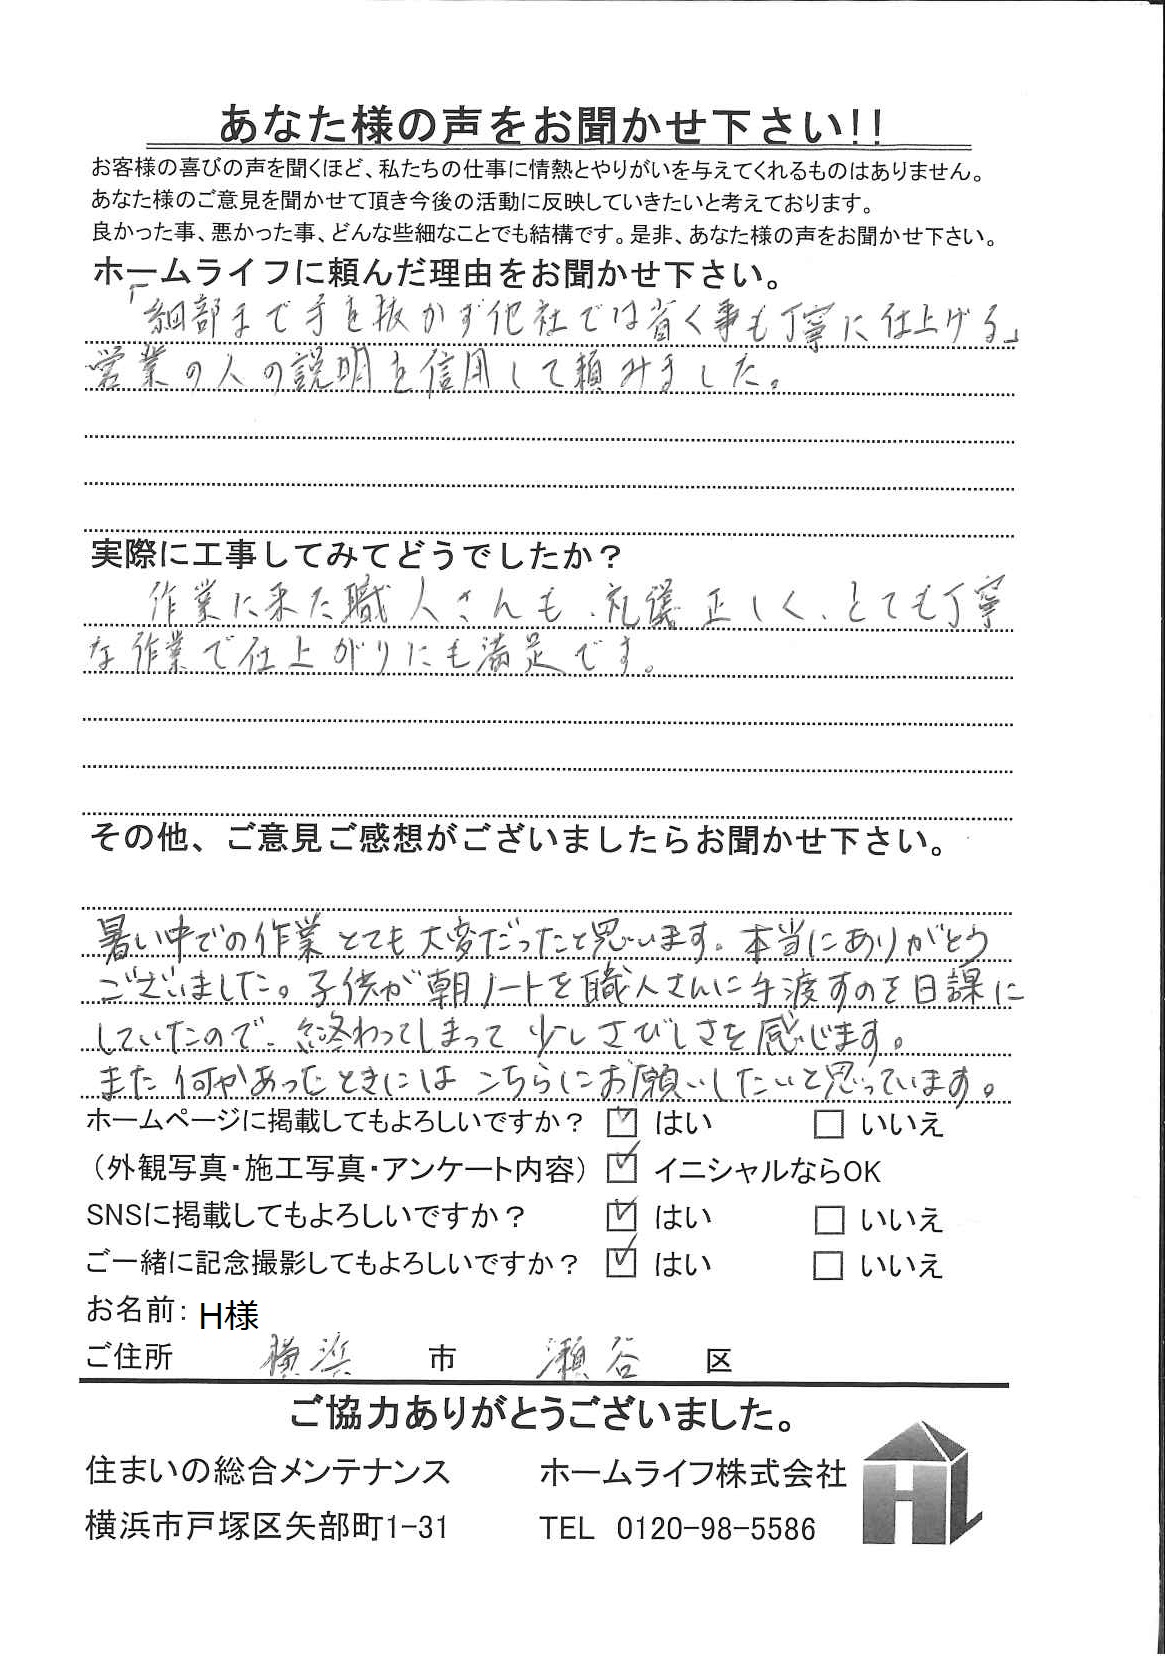 あなた様の声をお聞かせ下さい!!
お客様の喜びの声を聞くほど、私たちの仕事に情熱とやりがいを与えてくれるものはありません。
あなた様のご意見を聞かせて頂き今後の活動に反映していきたいと考えております。
良かった事、悪かった事、どんな些細なことでも結構です。是非、あなた様の声をお聞かせ下さい。
ホームライフに頼んだ理由をお聞かせ下さい。
「細部まで手を抜かず他社では省く事も丁寧に仕上げる」
営業の人の説明を信用して頼みました。
実際に工事してみてどうでしたか?
作業に来た職人さんも、礼儀正しく、とても丁寧
な作業で仕上がりにも満足です。
その他、ご意見ご感想がございましたらお聞かせ下さい。
暑い中での作業とても大変だったと思います。本当にありがとう
ございました。子供が朝ノートを職人さんに手渡すのを日課に
していたので、終わってしまって少しさびしさを感じます。
また何かあったときにはこちらにお願いしたいと思っています。
ホームページに掲載してもよろしいですか? ☑ はい □ いいえ
(外観写真・施工写真・アンケート内容) ☑ イニシャルならOK
SNSに掲載してもよろしいですか? ☑ はい □ いいえ
ご一緒に記念撮影してもよろしいですか? ☑ はい □ いいえ
お名前: H様
ご住所 横浜 市 瀬谷 区
ご協力ありがとうございました。
住まいの総合メンテナンス ホームライフ株式会社
横浜市戸塚区矢部町1-31 TEL 0120-98-5586
HL